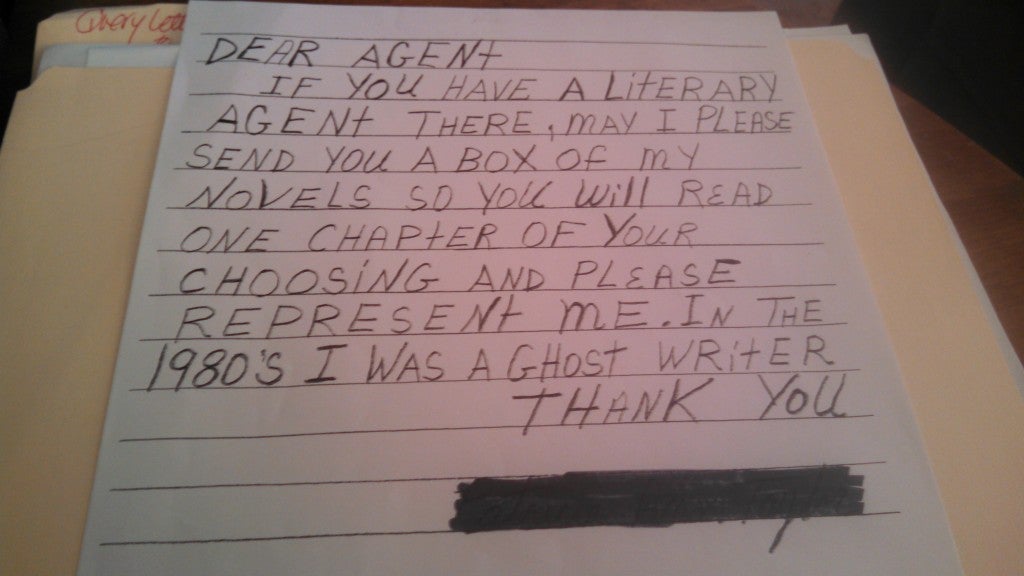 Query
DEAR AGENt
IF YOU HAVE A LitERARY
AGENt THERE, MAY I PLEASE
SEND YOU A BOX OF MY
NOVELS SO YOU Will READ
ONE CHAPtER OF YOUR
CHOOSiNG AND PLEASE
REPRESENt ME. IN THE
1980'S I WAS A GHOSt WRitER
THANK YOU